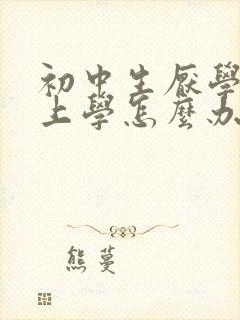 初中生厭學
上學怎麼办
熊蔓